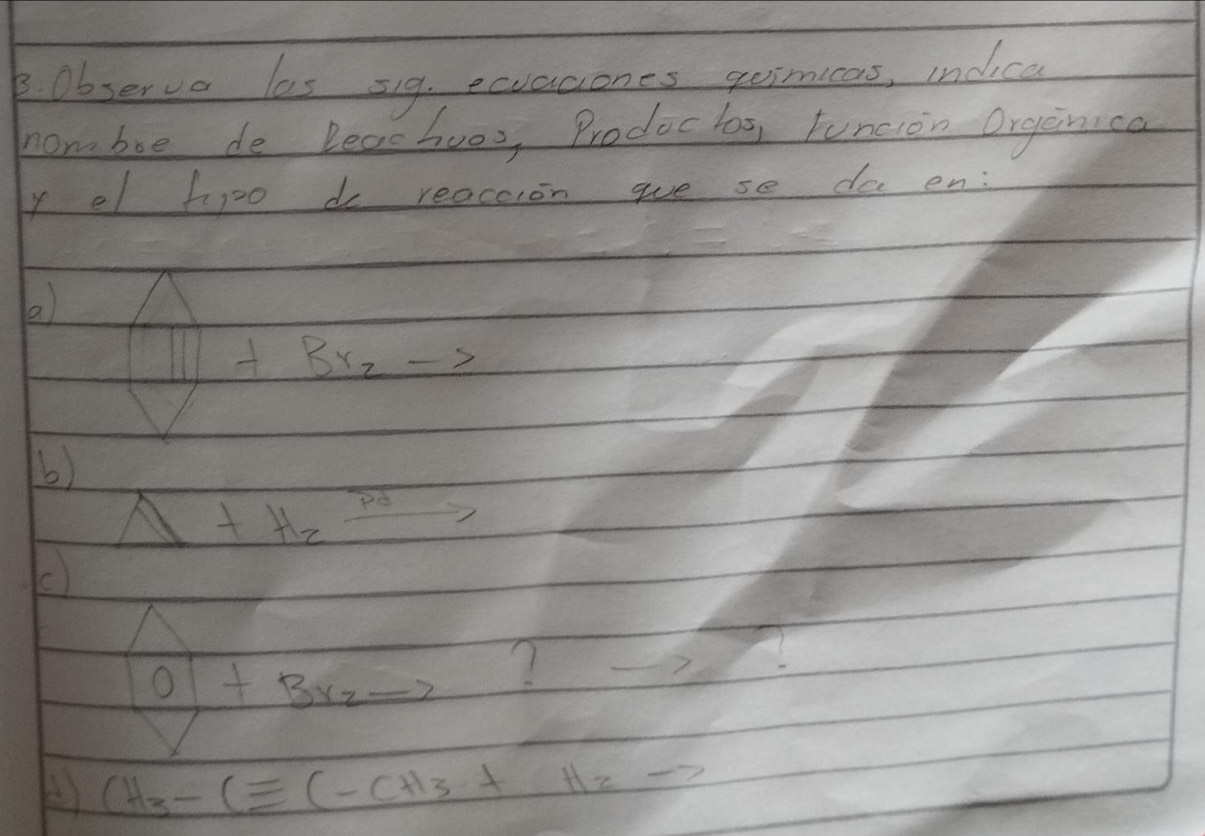 3. Observa las sig. ecuaciones químicas, indica
nombre de Reactivos, Productos, Función Orgánica
y el tipo de reacción que se da en:
a)
+ Br₂ →
b)
+ H₂ Pd →
c)
+ Br₂ → ? → ?
d) CH₃ - C ≡ C - CH₃ + H₂ →